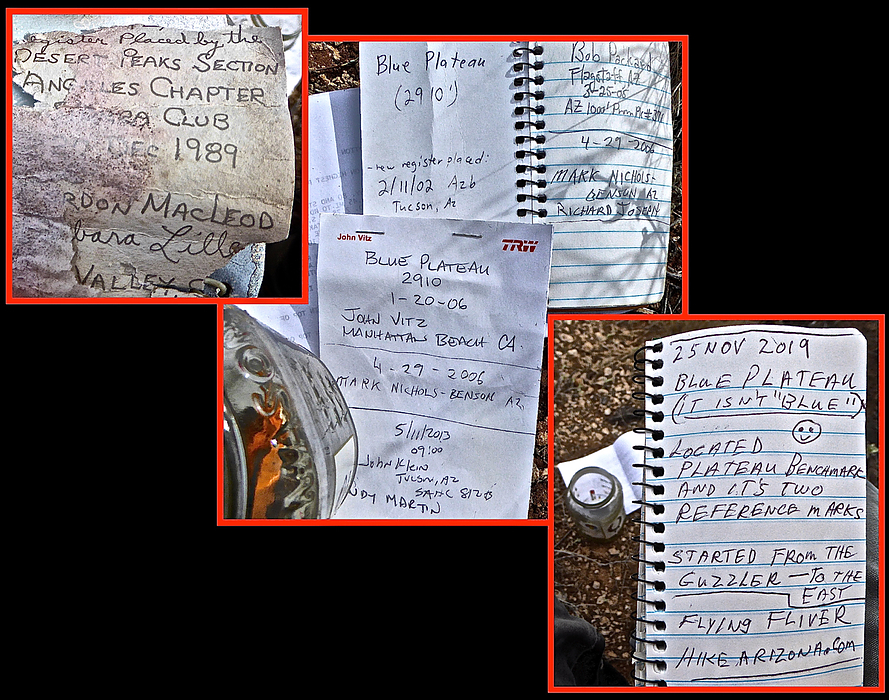 Register Placed by the
DESERT PEAKS SECTION
ANG LES CHAPTER
RA CLUB
DEC 1989
RDON MACLEOD
bara Lilla
VALLEY,
Blue Plateau
(2910')
-new register placed:
2/11/02 Azb
Tucson, Az
Bob Packard
Flagstaff AZ
3-25-05
AZ 1000' Prom Pk #
4-29-2006
MARK NICHOLS-
BENSON AZ
RICHARD
John Vitz
TRW
BLUE PLATEAU
2910
1-20-06
JOHN VITZ
MANHATTAN BEACH CA
4-29-2006
MARK NICHOLS-BENSON AZ
5/11/2013
09:00
John Klein
TUCSON, AZ
SAHC
NDY MARTIN
25 NOV 2019
BLUE PLATEAU
(IT ISN'T "BLUE")
LOCATED
PLATEAU BENCHMARK
AND IT'S TWO
REFERENCE MARKS
STARTED FROM THE
GUZZLER - TO THE
EAST
FLYING FLIVER
HIKE ARIZONA.COM